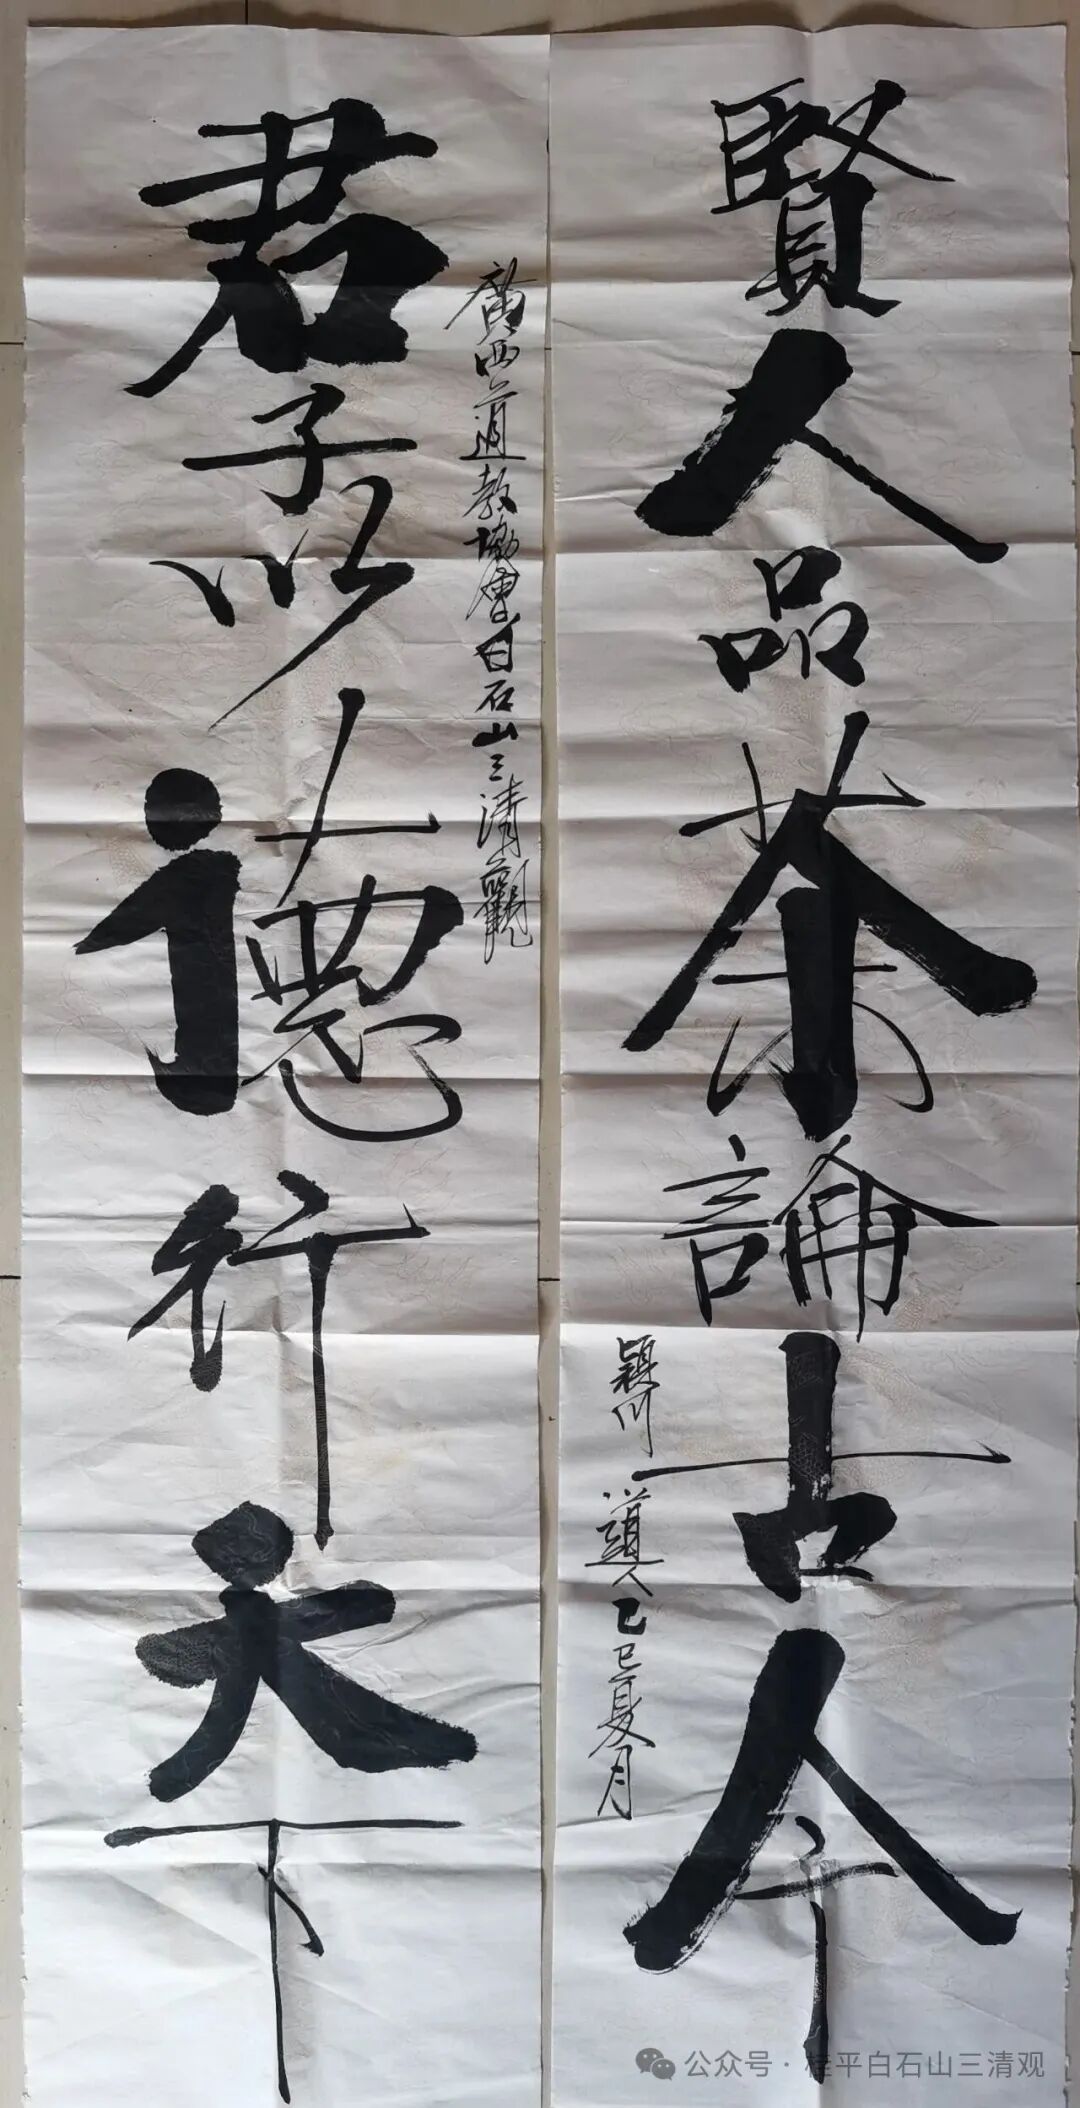 賢人品茶論古今
君子以德行天下
廣西道教協會白石山三清觀
穎川道人乙巳夏月
公众号·桂平白石山三清观